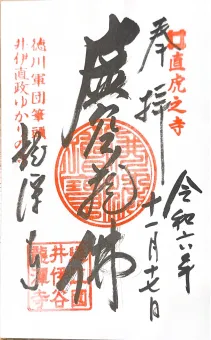 直虎之寺
奉拝
令和六年
十一月十七日
虚空蔵佛
徳川軍団筆頭
井伊直政ゆかりの
龍潭寺
井伊谷
龍潭寺